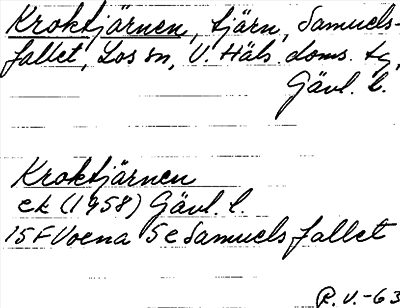 Kroktjärnen, tjärn, Samuels-
fallet, Los sn, V. Häls. doms. tg,
Gävl. l.
Kroktjärnen
ek (1958) Gävl. l.
15 F Voxna 5 e Samuelsfallet
R. V. -63